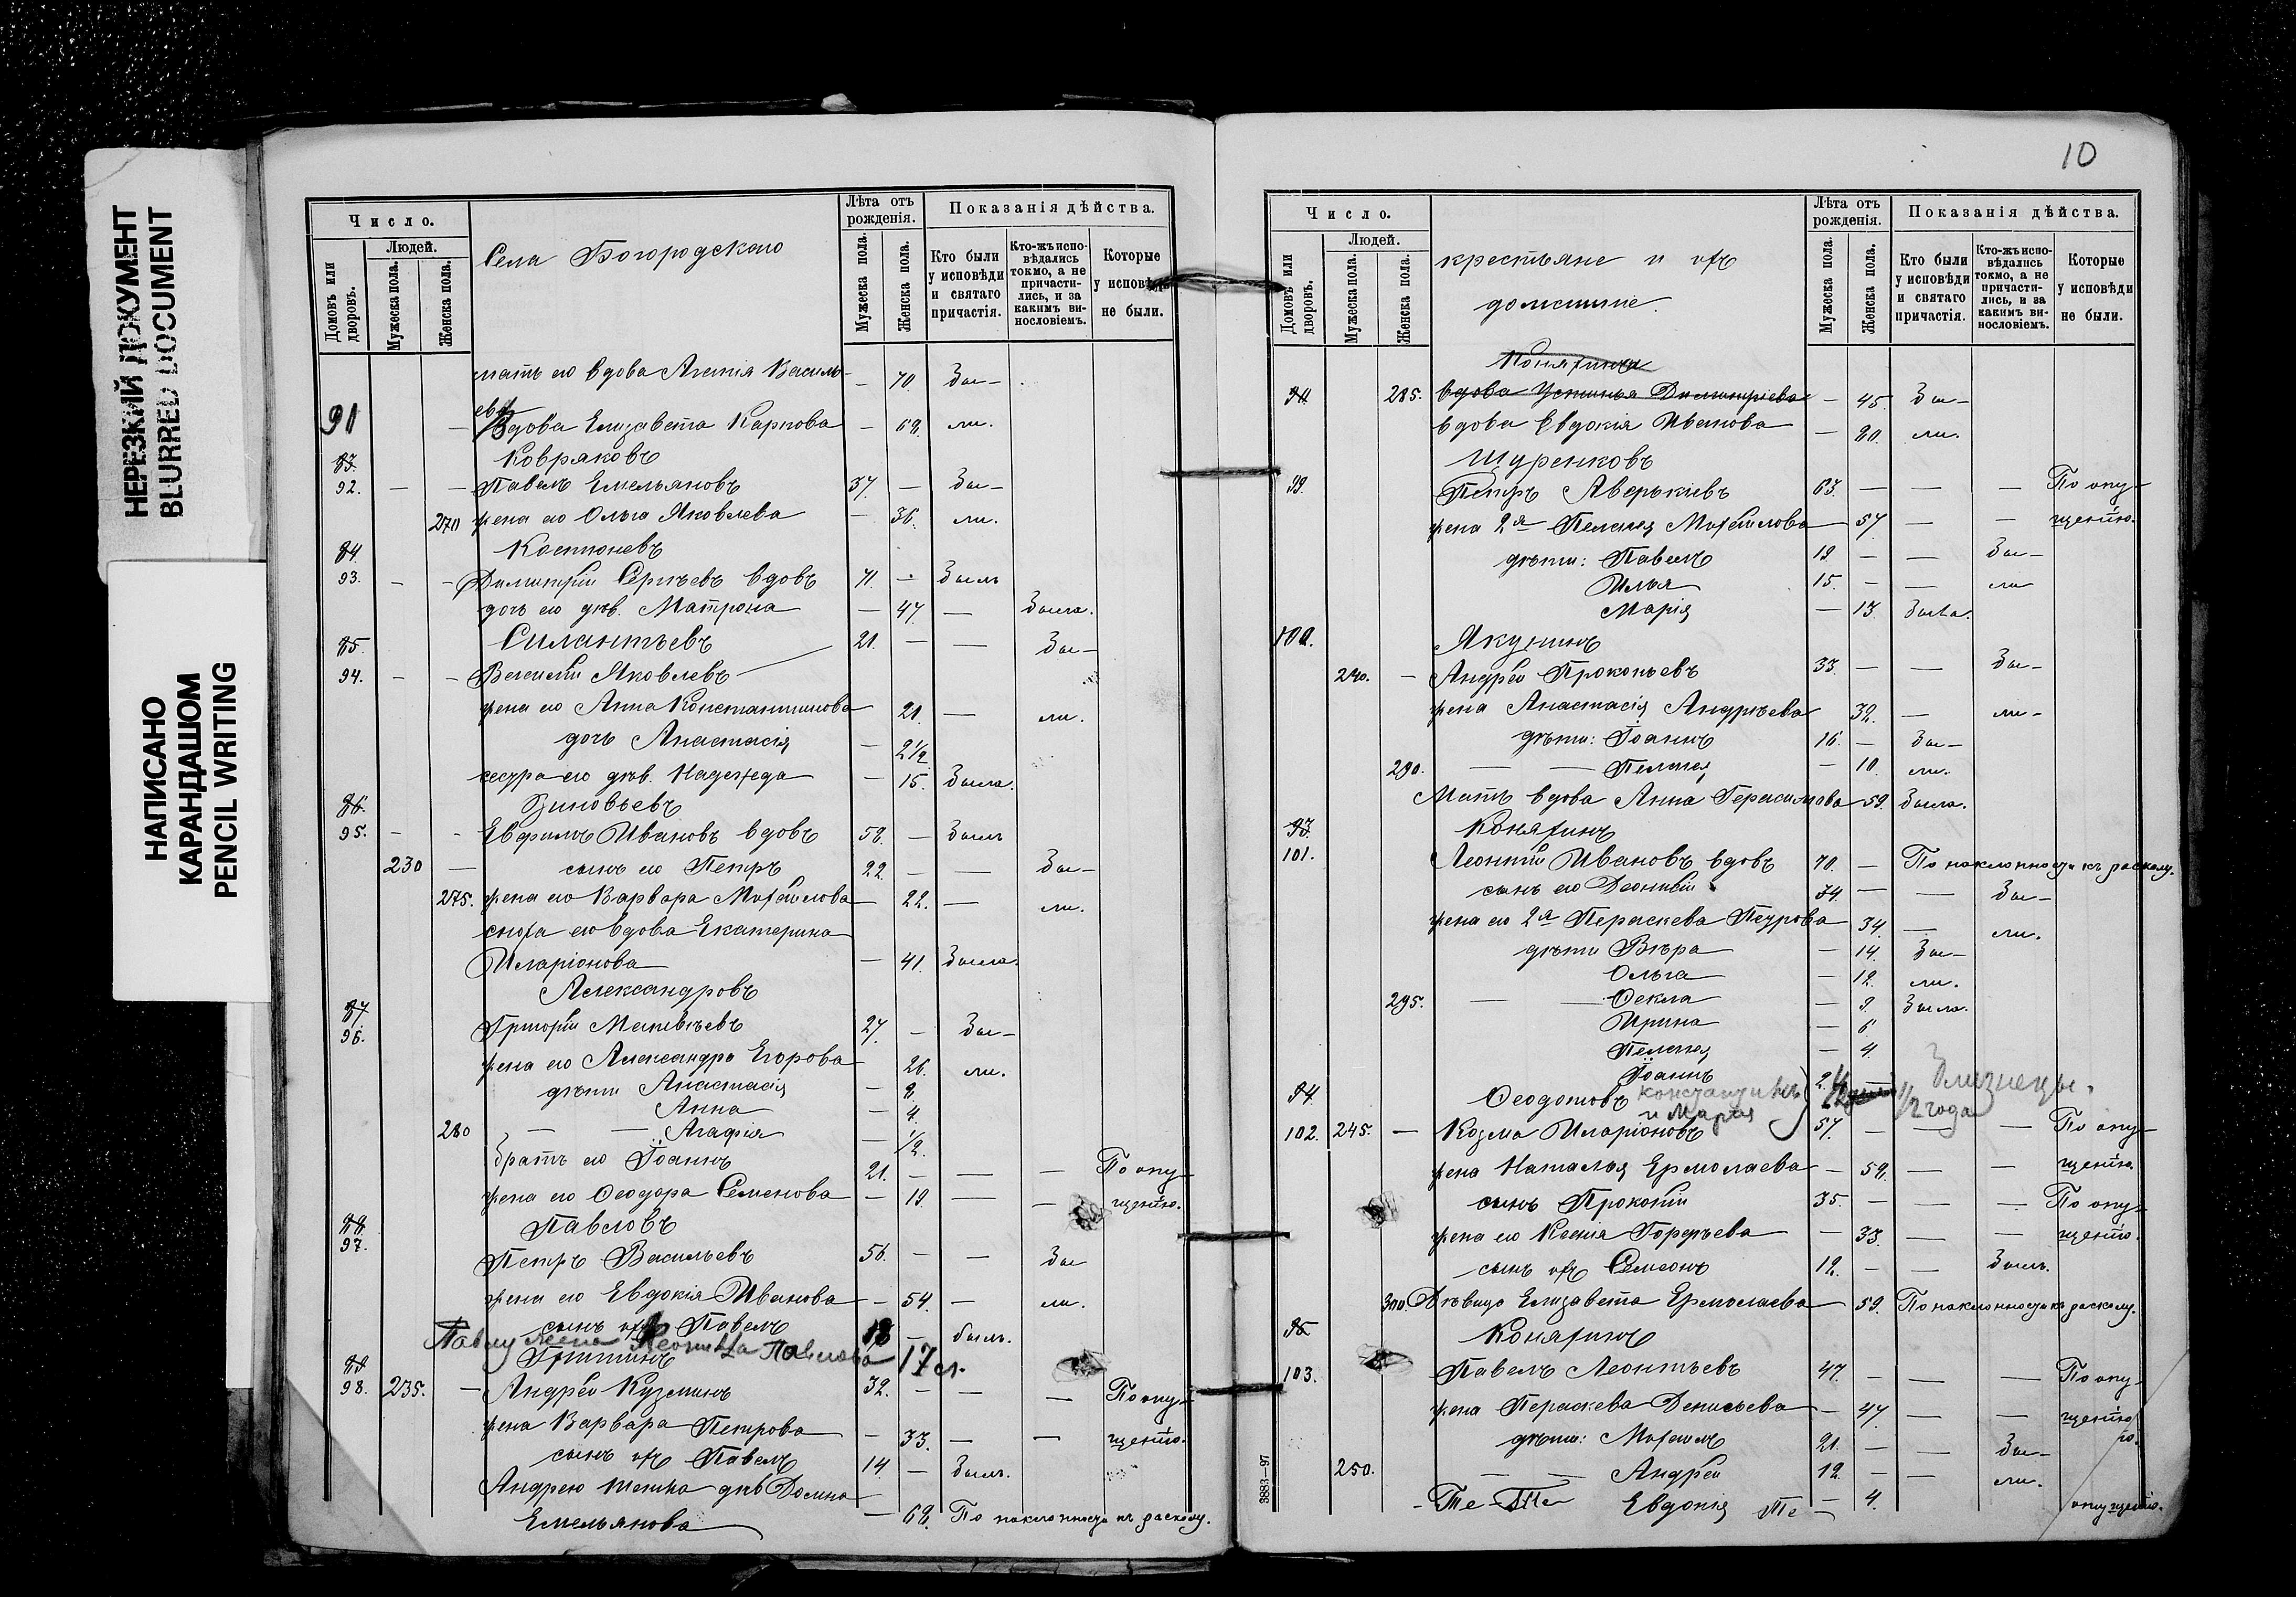 НЕРЕЗКИЙ ДОКУМЕНТ
BLURRED DOCUMENT
НАПИСАНО
КАРАНДАШОМ
PENCIL WRITING
Число. Лѣта отъ рожденія. Показанія дѣйства.
Домовъ или дворовъ. Людей. Мужеска пола. Женска пола. Села Богородскаго Мужеска пола. Женска пола. Кто были у исповѣди и святаго причастія. Кто-жъ исповѣдались токмо, а не причастились, и за какимъ винословіемъ. Которые у исповѣди не были.
мать его вдова Агапія Василь- — 70 Бы-
ева
91 — Вдова Елизавета Карпова — 68. ли.
83. Ковряковъ
92. — — Павелъ Емельяновъ 37. — Бы-
270 жена его Ольга Яковлева — 36. ли.
84. Костюневъ
93. — — Димитрій Сергѣевъ вдовъ 71. — Былъ
дочь его дѣв. Матрона — 47. — Была.
85. Силантьевъ 21. — — Бы-
94. — — Василій Яковлевъ
жена его Анна Константинова 21. — ли.
дочь Анастасія — 2½
сестра его дѣв. Надежда — 15. Была.
86. Зиновьевъ
95. — — Евфимъ Ивановъ вдовъ 58. — Былъ
230 — сынъ его Петръ 22. — — Бы-
275. жена его Варвара Михаилова — 22. — ли.
сноха его вдова Екатерина
Иларіонова — 41. Была.
Александровъ
87.
96. Григорій Матвѣевъ 27. — Бы-
жена его Александра Егорова 26. ли.
дѣти Анастасія — 8.
Анна — 4.
280 — — Агафія — ½.
братъ его Іоаннъ 21. — — — По опу-
жена его Ѳеодора Семенова — 19. — — щенію.
88. Павловъ
97. Петръ Васильевъ 56. — — Бы
жена его Евдокія Иванова — 54. — ли.
сынъ ихъ Павелъ 18 — былъ.
Павлу жена Павлова 17 л.
89 Гришинъ
98. 235. — Андрей Кузминъ 32. — — — По опу-
жена Варвара Петрова — 33. — — щенію.
сынъ ихъ Павелъ 14. — Былъ.
Андрею тетка дѣв Домна
Емельянова — 68. По наклонности къ расколу.
10
Число. Лѣта отъ рожденія. Показанія дѣйства.
Домовъ или дворовъ. Людей. Мужеска пола. Женска пола. крестьяне и ихъ домашніе. Мужеска пола. Женска пола. Кто были у исповѣди и святаго причастія. Кто-жъ исповѣдались токмо, а не причастились, и за какимъ винословіемъ. Которые у исповѣди не были.
Коняхина
285. вдова Устинья Димитріева — 45. Бы-
вдова Евдокія Иванова — 80. ли.
Шуренковъ
99. Петръ Аверькіевъ 63. — — — По опу-
жена 2я Пелагея Михаилова 57. — — щенію.
дѣти: Павелъ 19 — — Бы-
Илья 15. — — ли
Марія — 13. Была.
100. Якунинъ
240. — Андрей Прокопьевъ 33. — — Бы-
жена Анастасія Андреева 32. — ли-
дѣти: Іоаннъ 16. — Бы-
290. — — Пелагея — 10. ли.
Мать вдова Анна Герасимова 59. Была.
93. Коняхинъ
101. Леонтій Ивановъ вдовъ 70. — По наклонности къ расколу.
сынъ его Леонтій 34. — — Бы-
жена его 2я Параскева Петрова 34. — ли.
дѣти Вѣра — 14. Бы-
Ольга — 12. ли.
295. — — Ѳекла — 9. Была.
Ирина — 6
Пелагея — 4.
Іоаннъ 2.
94. Ѳеодотовъ Константинъ и Марія ½ года близнецы.
102. 245. — Козма Иларіоновъ 57. — — — По опу-
жена Наталья Ермолаева — 58. — — щенію.
сынъ Прокопій 35. — — — По опу-
жена его Ксенія Гордѣева — 33. — — щенію.
сынъ ихъ Симеонъ 12. — — Былъ.
300. Дѣвица Елизавета Ермолаева 59. По наклонности къ расколу.
95 Коняхинъ
103. Павелъ Леонтьевъ 47. — — — По опу-
жена Параскева Денисьева — 47. — — щенію
дѣти: Михаилъ 21. — — Бы-
250. — — Андрей 12. — — ли.
Евдокія — 4. опущенію.
3883—97